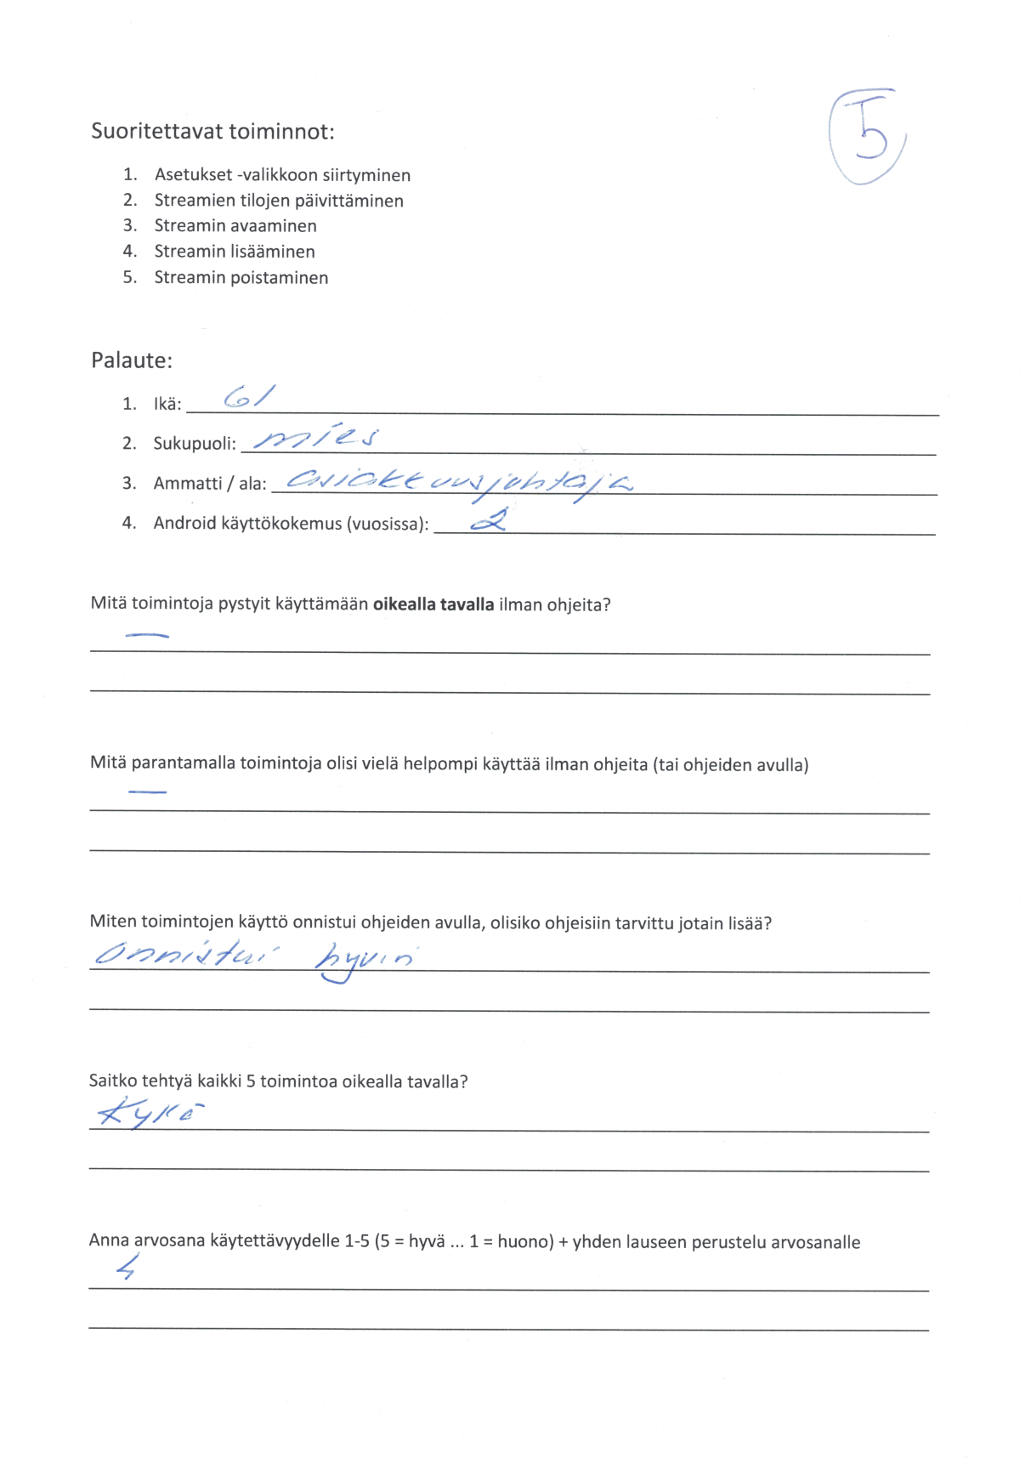 5
Suoritettavat toiminnot:
1. Asetukset -valikkoon siirtyminen
2. Streamien tilojen päivittäminen
3. Streamin avaaminen
4. Streamin lisääminen
5. Streamin poistaminen
Palaute:
1. Ikä: 61
2. Sukupuoli: mies
3. Ammatti / ala: asiakkuusjohtaja
4. Android käyttökokemus (vuosissa): 2
Mitä toimintoja pystyit käyttämään oikealla tavalla ilman ohjeita?
—
Mitä parantamalla toimintoja olisi vielä helpompi käyttää ilman ohjeita (tai ohjeiden avulla)
—
Miten toimintojen käyttö onnistui ohjeiden avulla, olisiko ohjeisiin tarvittu jotain lisää?
Onnistui hyvin
Saitko tehtyä kaikki 5 toimintoa oikealla tavalla?
Kyllä
Anna arvosana käytettävyydelle 1-5 (5 = hyvä ... 1 = huono) + yhden lauseen perustelu arvosanalle
4